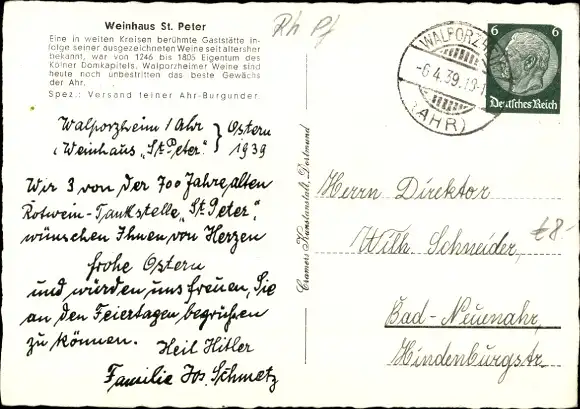 Weinhaus St. Peter
Eine in weiten Kreisen berühmte Gaststätte in-
folge seiner ausgezeichneten Weine seit altersher
bekannt, war von 1246 bis 1805 Eigentum des
Kölner Domkapitels. Walporzheimer Weine sind
heute noch unbestritten das beste Gewächs
der Ahr.
Spez.: Versand feiner Ahr-Burgunder.
Walporzheim / Ahr } Ostern
(Weinhaus „St. Peter“ } 1939
Wir 3 von der 700 Jahre alten
Rotwein-Tankstelle „St. Peter“,
wünschen Ihnen von Herzen
frohe Ostern
und würden uns freuen, Sie
an den Feiertagen begrüßen
zu können. Heil Hitler
Familie Jos. Schmetz
Cramers Kunstanstalt, Dortmund
Rh Pf
WALPORZHEIM
-6.4.39.19-
(AHR)
6 6
Deutsches Reich
Herrn Direktor
Wilh. Schneider,
€8-
Bad-Neuenahr,
Hindenburgstr.